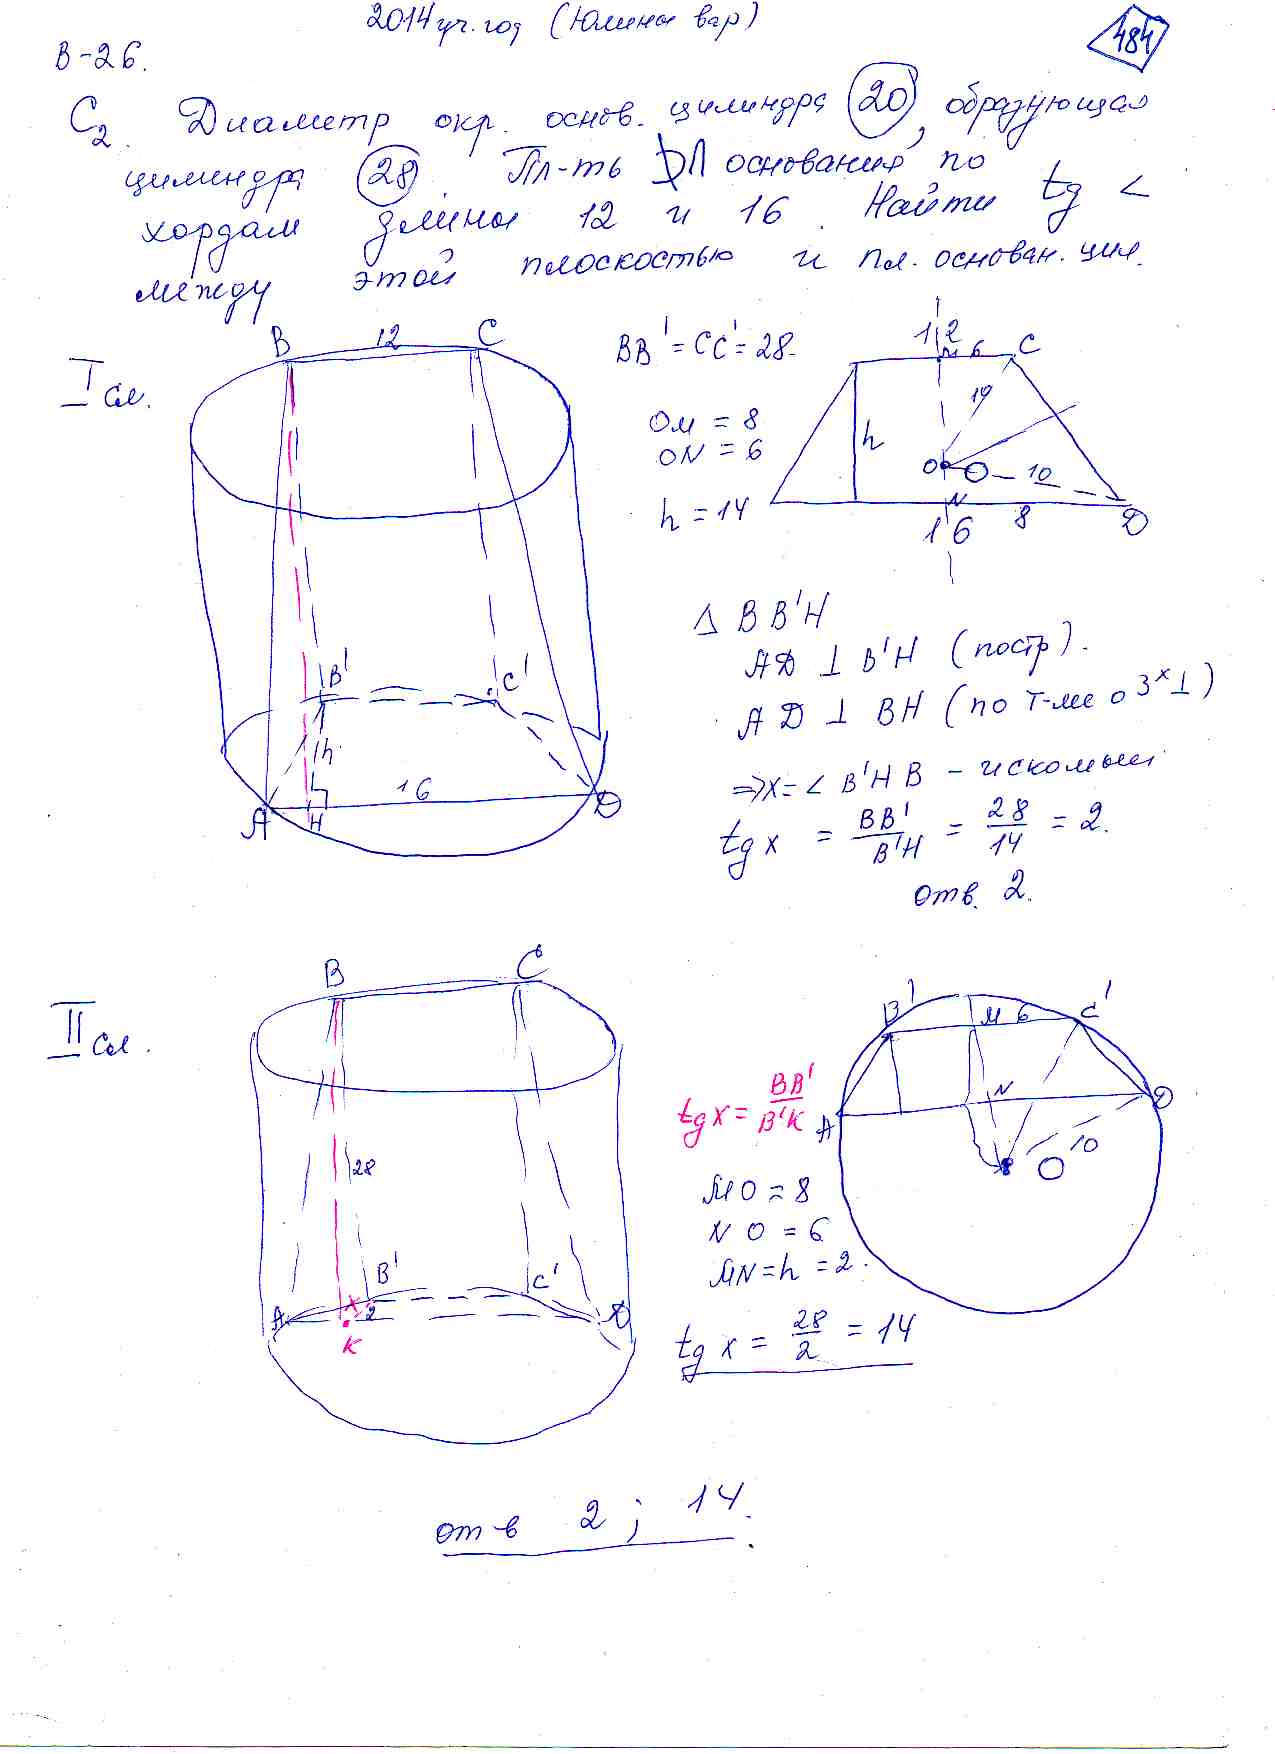 2014 уч. год (Юлины вар)
484
В-26.
С2. Диаметр окр. основ. цилиндра 20, образующая
цилиндра 28. Пл-ть ∩ основания по
хордам длины 12 и 16. Найти tg <
между этой плоскостью и пл. основан. цил.
I сл.
B 12 C
BB' = CC' = 28.
12
M 6 C
10
OM = 8
ON = 6
h
O O 10
h = 14
N
16 8 D
B' C'
h
16
A H D
Δ BB'H
AD ⊥ B'H (постр).
AD ⊥ BH (по т-ме о 3х ⊥)
⇒ x = ∠ B'HB - искомый
tg x = BB'/B'H = 28/14 = 2.
Отв. 2.
II сл.
B C
B' M 6 C'
A N D
O 10
tg x = BB'/B'K
28
MO = 8
NO = 6
MN = h = 2.
B' C'
A x 2 D
K
tg x = 28/2 = 14
отв 2; 14.